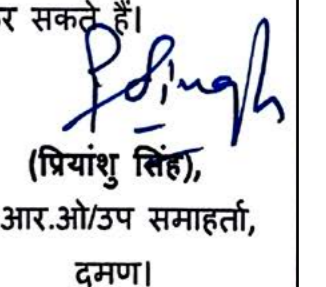 र सकते हैं।
P Singh
(प्रियांशु सिंह),
आर.ओ/उप समाहर्ता,
दमण।